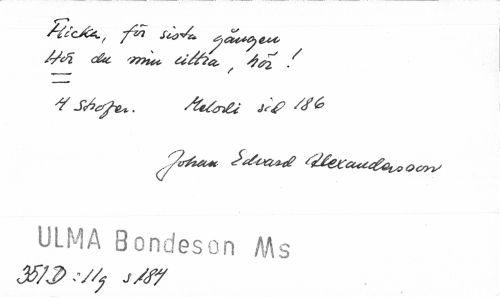 Flicka, för sista gången
Hör du min cittra, hör!
4 strofer. Melodi sid 186
Johan Edvard Alexandersson
ULMA Bondeson Ms
351D:11g s 184